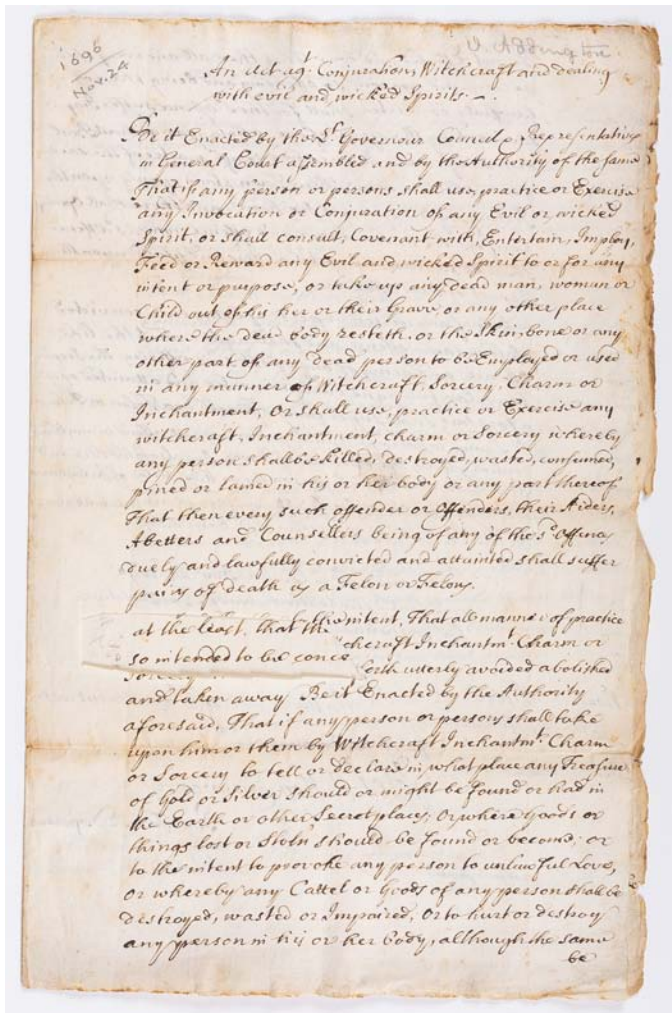 1696
Nov. 24
An Act agt. Conjuration, Witchcraft and dealing
with evil and wicked Spirits.
Be it Enacted by the Lt. Governour Council & Representatives
in General Court assembled and by the Authority of the same
That if any person or persons shall use, practice or Exercise
any Invocation or Conjuration of any Evil or wicked
Spirit, or shall consult, Covenant with, Entertain, Imploy,
Feed or Reward any Evil and wicked Spirit to or for any
intent or purpose, or take up any dead man, woman or
Child out of his her or their Grave or any other place
where the dead body resteth, or the Skin, bone or any
other part of any dead person to be Employed or used
in any manner of Witchcraft, Sorcery, Charm or
Inchantment, Or shall use, practice or Exercise any
witchcraft, Inchantment, charm or Sorcery whereby
any person shall be killed, destroyed, wasted, consumed,
pined or lamed in his or her body or any part thereof
That then every such offender or Offenders, their Aiders,
Abetters and Counsellers being of any of the sd. Offences
duely and lawfully convicted and attainted shall suffer
pains of death as a Felon or Felons.
the intent, That all manner of practice
at the least, that the
chcraft Inchantmt. Charm or
so intended to be conce
forth utterly avoided abolished
and taken away Be it Enacted by the Authority
aforesaid, That if any person or persons shall take
upon him or them by Witchcraft Inchantmt. Charm
or Sorcery to tell or declare in what place any Treasure
of Gold or Silver should or might be found or had in
the Earth or other Secret places; Or where Goods or
things lost or Stoln should be found or become; or
to the intent to provoke any person to unlawful Love,
Or whereby any Cattel or Goods of any person shall be
destroyed, wasted or Impaired, Or to hurt or destroy
any person in his or her body, although the same
be